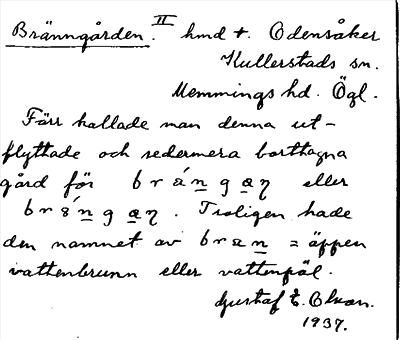 Bränngården. II hmd t. Odensåker
Kullerstads sn.
Memmings hd. Ögl.
Förr kallade man denna ut-
flyttade och sedermera borttagna
gård för brängaŋ eller
brängaŋ. Troligen hade
den namnet av bran = öppen
vattenbrunn eller vattenpöl.
Gustaf E. Olson.
1937.